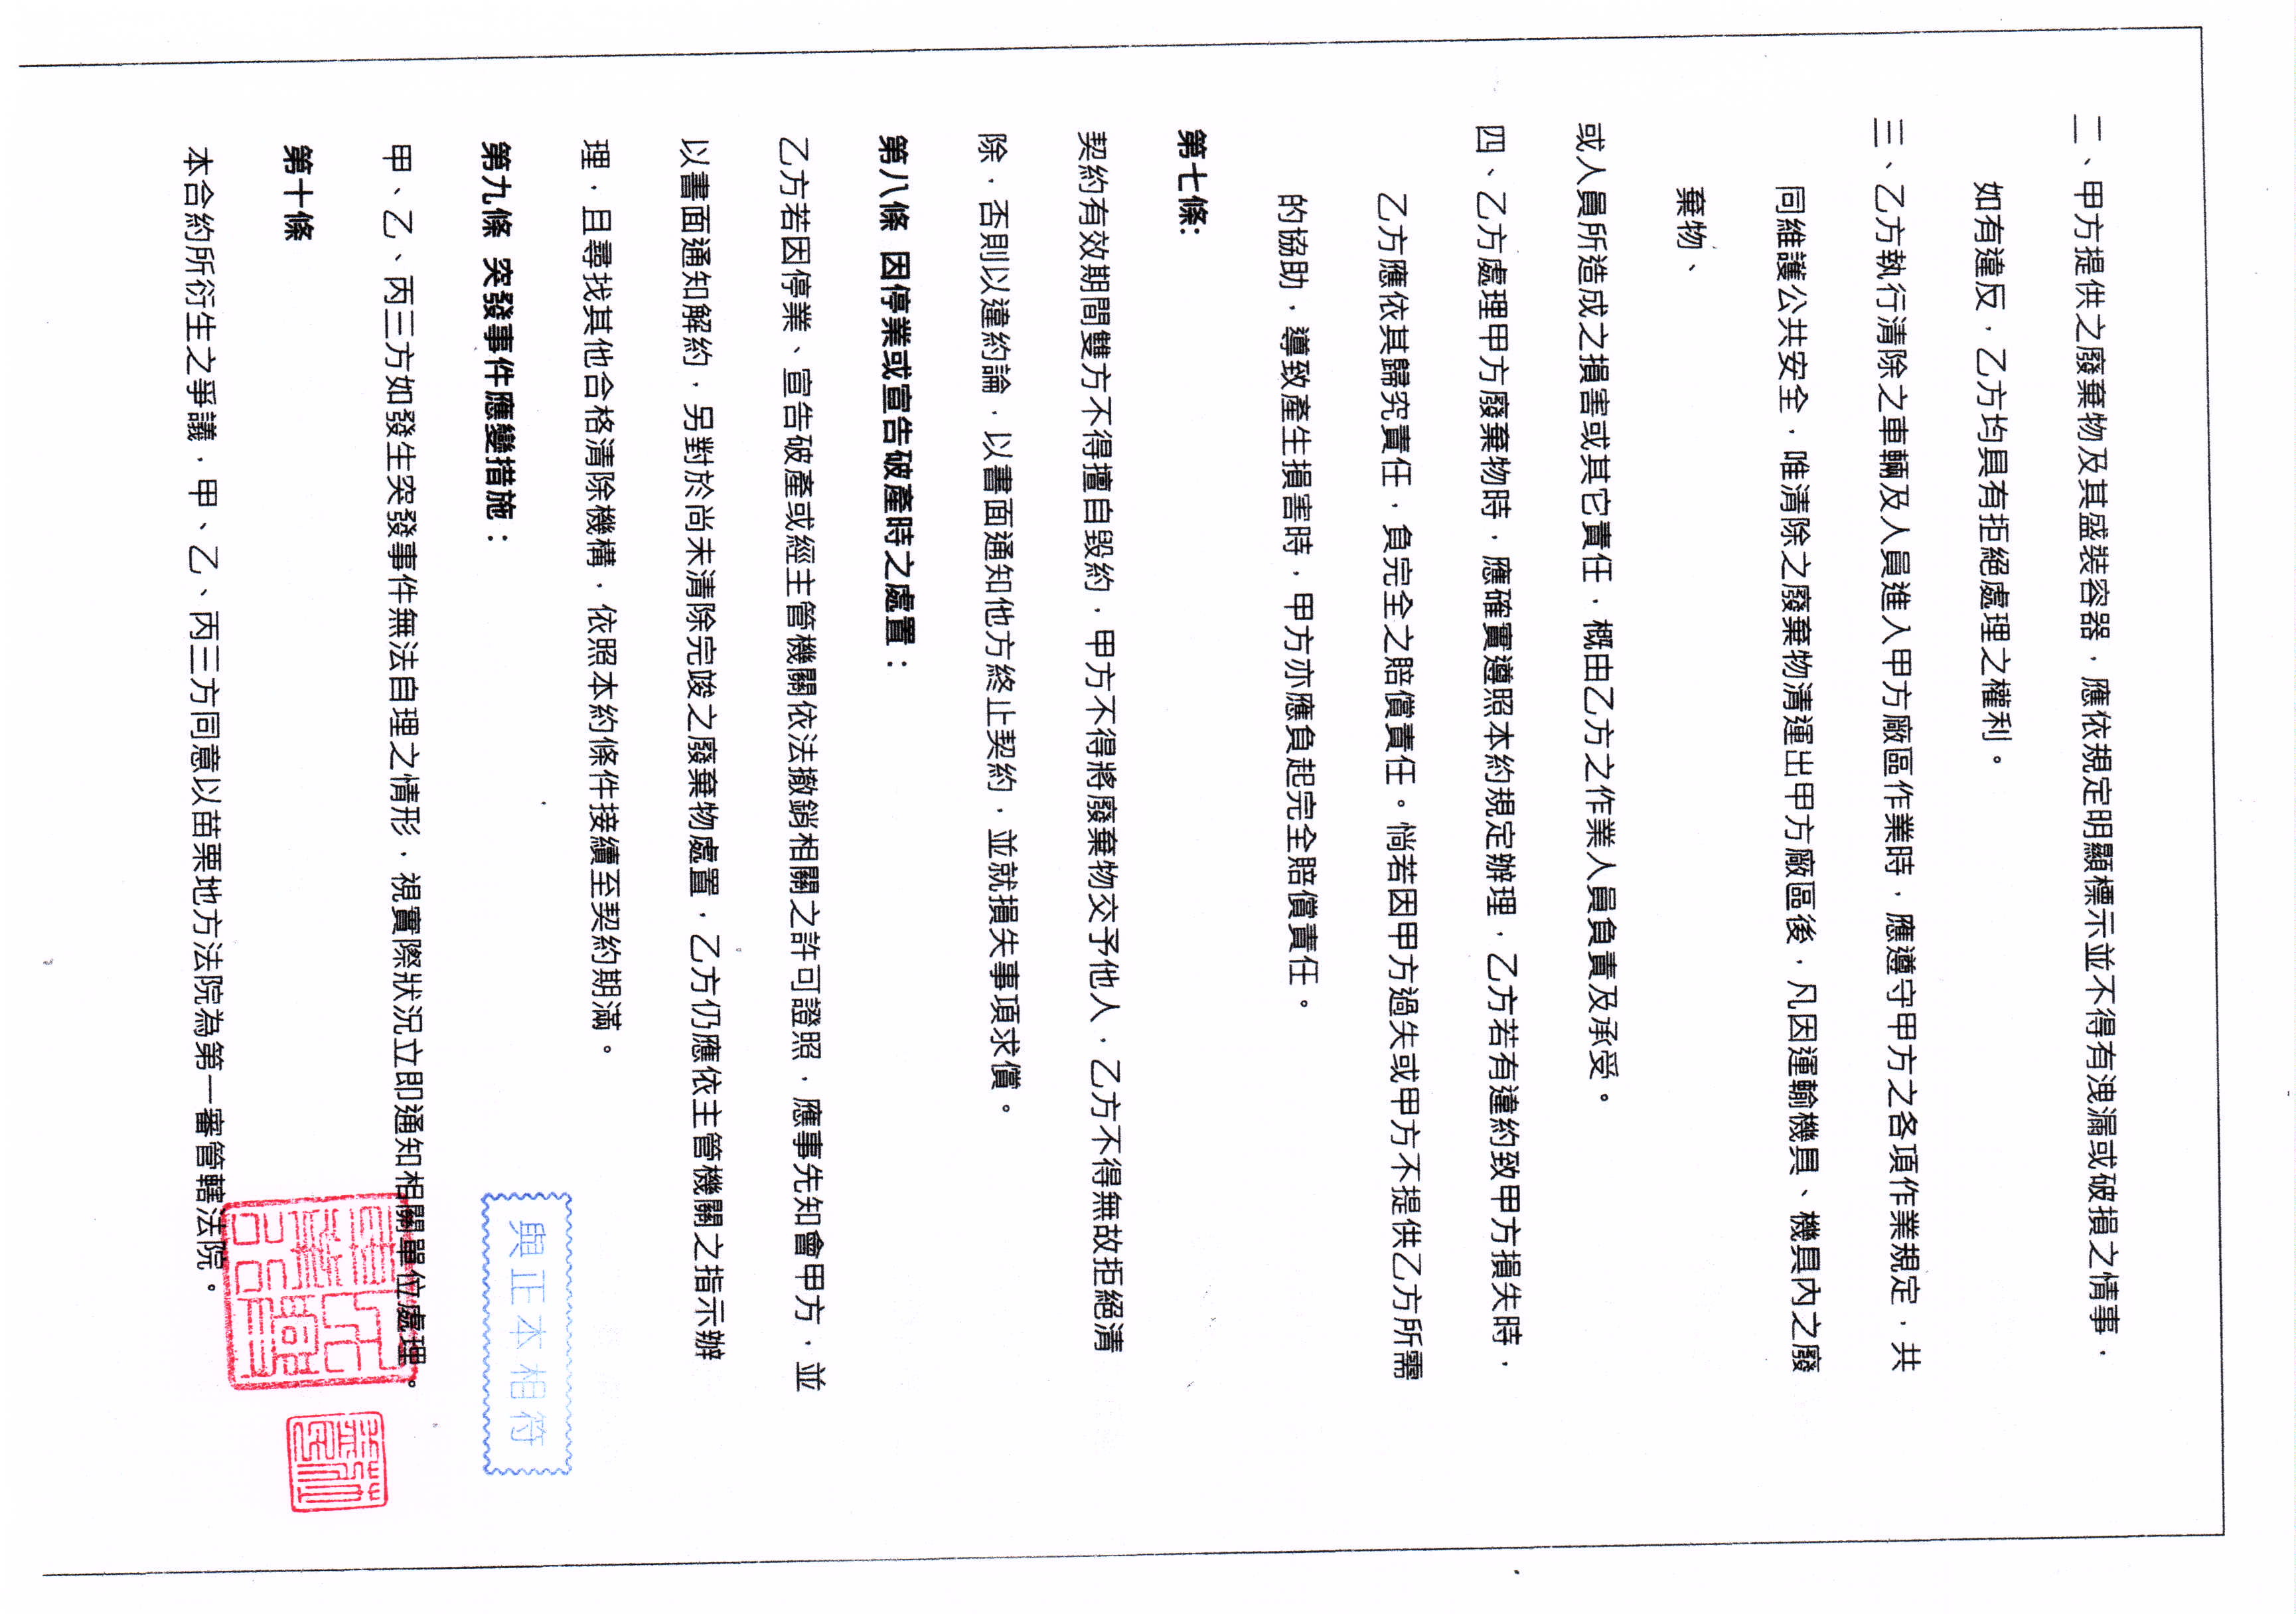 二、甲方提供之廢棄物及其盛裝容器，應依規定明顯標示並不得有洩漏或破損之情事，
如有違反，乙方均具有拒絕處理之權利。
三、乙方執行清除之車輛及人員進入甲方廠區作業時，應遵守甲方之各項作業規定，共
同維護公共安全，唯清除之廢棄物清運出甲方廠區後，凡因運輸機具、機具內之廢
棄物、
或人員所造成之損害或其它責任，概由乙方之作業人員負責及承受。
四、乙方處理甲方廢棄物時，應確實遵照本約規定辦理，乙方若有違約致甲方損失時，
乙方應依其歸究責任，負完全之賠償責任。惝若因甲方過失或甲方不提供乙方所需
的協助，導致產生損害時，甲方亦應負起完全賠償責任。
第七條:
契約有效期間雙方不得擅自毀約，甲方不得將廢棄物交予他人，乙方不得無故拒絕清
除，否則以違約論，以書面通知他方終止契約，並就損失事項求償。
第八條 因停業或宣告破產時之處置：
乙方若因停業、宣告破產或經主管機關依法撤銷相關之許可證照，應事先知會甲方，並
以書面通知解約，另對於尚未清除完竣之廢棄物處置，乙方仍應依主管機關之指示辦
理，且尋找其他合格清除機構，依照本約條件接續至契約期滿。
第九條 突發事件應變措施：
甲、乙、丙三方如發生突發事件無法自理之情形，視實際狀況立即通知相關單位處理。
第十條
本合約所衍生之爭議，甲、乙、丙三方同意以苗栗地方法院為第一審管轄法院。
與正本相符